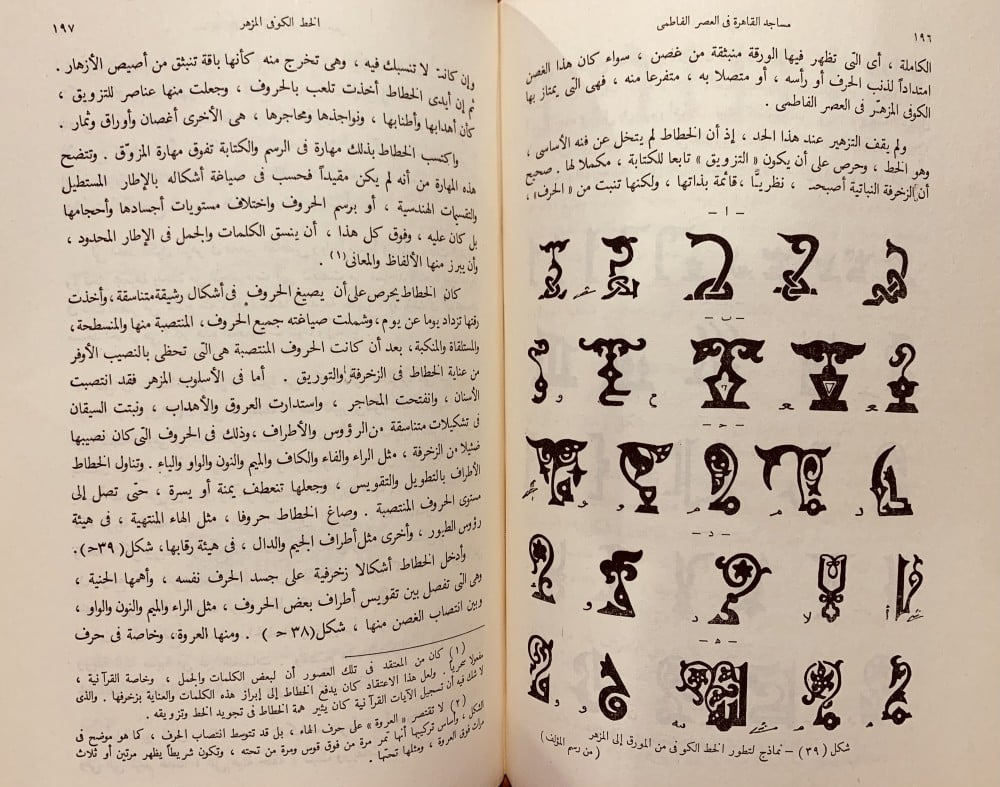 مساجد القاهرة فى العصر الفاطمى
١٩٦
الكاملة ، أى التى تظهر فيها الورقة منبثقة من غصن ، سواء كان هذا الغصن
امتداداً لذنب الحرف أو رأسه ، أو متصلا به ، متفرعا منه ، فهى التى يمتاز بها
الكوفى المزهّر فى العصر الفاطمى .
ولم يقف التزهير عند هذا الحد ، إذ أن الخطاط لم يتخل عن فنه الأساسى ،
وهو الخط ، وحرص على أن يكون « التزويق » تابعا للكتابة ، مكملا لها . صحيح
أن الزخرفة النباتية أصبحت ، نظريًّا ، قائمة بذاتها ، ولكنها تنبت من « الحرف » ،
- ا -
- ب -
و ح
- ح -
و و م م د
- د -
و د لا
- ه -
و و
شكل ( ٣٩ ) – نماذج لتطور الخط الكوفى من المورق إلى المزهر
( من رسم المؤلف )
الخط الكوفى المزهر
١٩٧
وإن كانت لا تنسبك فيه ، وهى تخرج منه كأنها باقة تنبثق من أصيص الأزهار .
ثم إن أيدى الخطاط أخذت تلعب بالحروف ، وجعلت منها عناصر للتزويق ،
كأن أهدابها وأطنابها ، ونواجذها ومحاجرها ، هى الأخرى أغصان وأوراق وثمار .
واكتسب الخطاط بذلك مهارة فى الرسم والكتابة تفوق مهارة المزوّق . وتتضح
هذه المهارة من أنه لم يكن مقيداً فحسب فى صياغة أشكاله بالإطار المستطيل
والتقسيمات الهندسية ، أو برسم الحروف واختلاف مستويات أجسادها وأحجامها
بل كان عليه ، وفوق كل هذا ، أن ينسق الكلمات والجمل فى الإطار المحدود ،
وأن يبرز منها الألفاظ والمعانى(١) .
كان الخطاط يحرص على أن يصيغ الحروف فى أشكال رشيقة متناسقة ، وأخذت
رقتها تزداد يوما عن يوم ، وشملت صياغته جميع الحروف ، المنتصبة منها والمنسطحة ،
والمستلقاة والمنكبة ، بعد أن كانت الحروف المنتصبة هى التى تحظى بالنصيب الأوفر
من عناية الخطاط فى الزخرفة والتوريق . أما فى الأسلوب المزهر فقد انتصبت
الأسنان ، وانفتحت المحاجر ، واستدارت العروق والأهداب ، ونبتت السيقان
فى تشكيلات متناسقة من الرؤوس والأطراف ، وذلك فى الحروف التى كان نصيبها
ضئيلا من الزخرفة ، مثل الراء والفاء والكاف والميم والنون والواو والياء . وتناول الخطاط
الأطراف بالتطويل والتقويس ، وجعلها تنعطف يمنة أو يسرة ، حتى تصل إلى
مستوى الحروف المنتصبة . وصاغ الخطاط حروفا ، مثل الهاء المنتهية ، فى هيئة
رؤوس الطيور ، وأخرى مثل أطراف الجيم والدال ، فى هيئة رقابها ، شكل( ٣٩ ح ) .
وأدخل الخطاط أشكالا زخرفية على جسد الحرف نفسه ، وأهمها الحنية ،
وهى التى تفصل بين تقويس أطراف بعض الحروف ، مثل الراء والميم والنون والواو ،
وبين انتصاب الغصن منها ، شكل( ٣٨ ح ) . ومنها العروة ، وخاصة فى حرف
(١) كان من المعتقد فى تلك العصور أن لبعض الكلمات والجمل ، وخاصة القرآنية ،
مفعولا سحرياً . ولعل هذا الاعتقاد كان يدفع الخطاط إلى إبراز هذه الكلمات والعناية بزخرفها . والذى
لا شك فيه أن تسجيل الآيات القرآنية كان يثير همة الخطاط فى تجويد الخط وتزويقه .
(٢) لا تقتصر « العروة » على حرف الهاء ، بل قد تتوسط انتصاب الحرف ، كما هو موضح فى
الشكل ، وأساس تركيبها أنها تمر مرة من فوق قوس ومرة من تحته ، وتكون شريطاً يظهر مرتين أو ثلاث
مرات فوق العروة ، ومثلها تحتها .